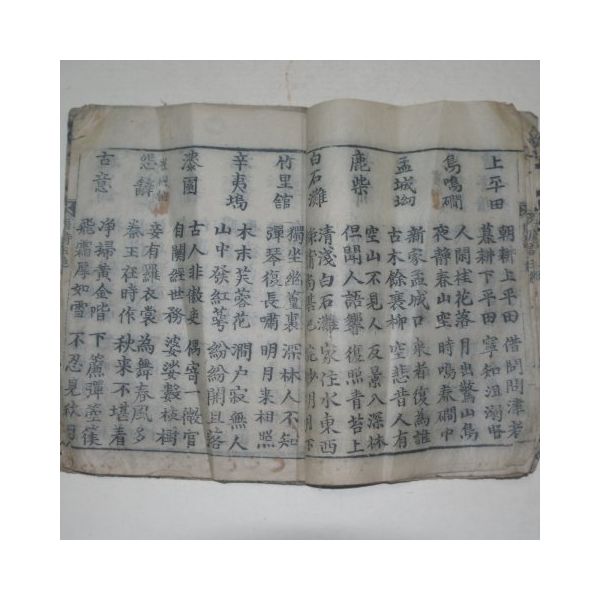 上平田
朝耕上平田 借問問津者
暮耕下平田 寧知沮溺賢
鳥鳴磵
人閒桂花落 月出驚山鳥
夜靜春山空 時鳴春磵中
孟城坳
新家孟城口 來者復為誰
古木餘衰柳 空悲昔人有
鹿柴
空山不見人 反景入深林
但聞人語響 復照青苔上
白石灘
清淺白石灘 家住水東西
明月下
竹里館
獨坐幽篁裏 深林人不知
彈琴復長嘯 明月來相照
辛夷塢
木末芙蓉花 澗户寂無人
山中發紅萼 紛紛開且落
漆園
古人非傲吏 偶寄一微官
自闕經世務 婆娑數株樹
怨辭
妾有羅衣裳 為舞春風多
秦王在時作 秋來不堪着
古意
净掃黃金階 下簾彈箜篌
飛霜厚如雪 不忍見秋月